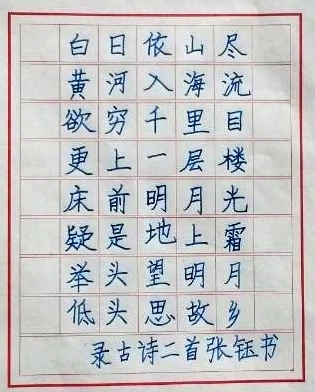 白日依山尽
黄河入海流
欲穷千里目
更上一层楼
床前明月光
疑是地上霜
举头望明月
低头思故乡
录古诗二首张钰书